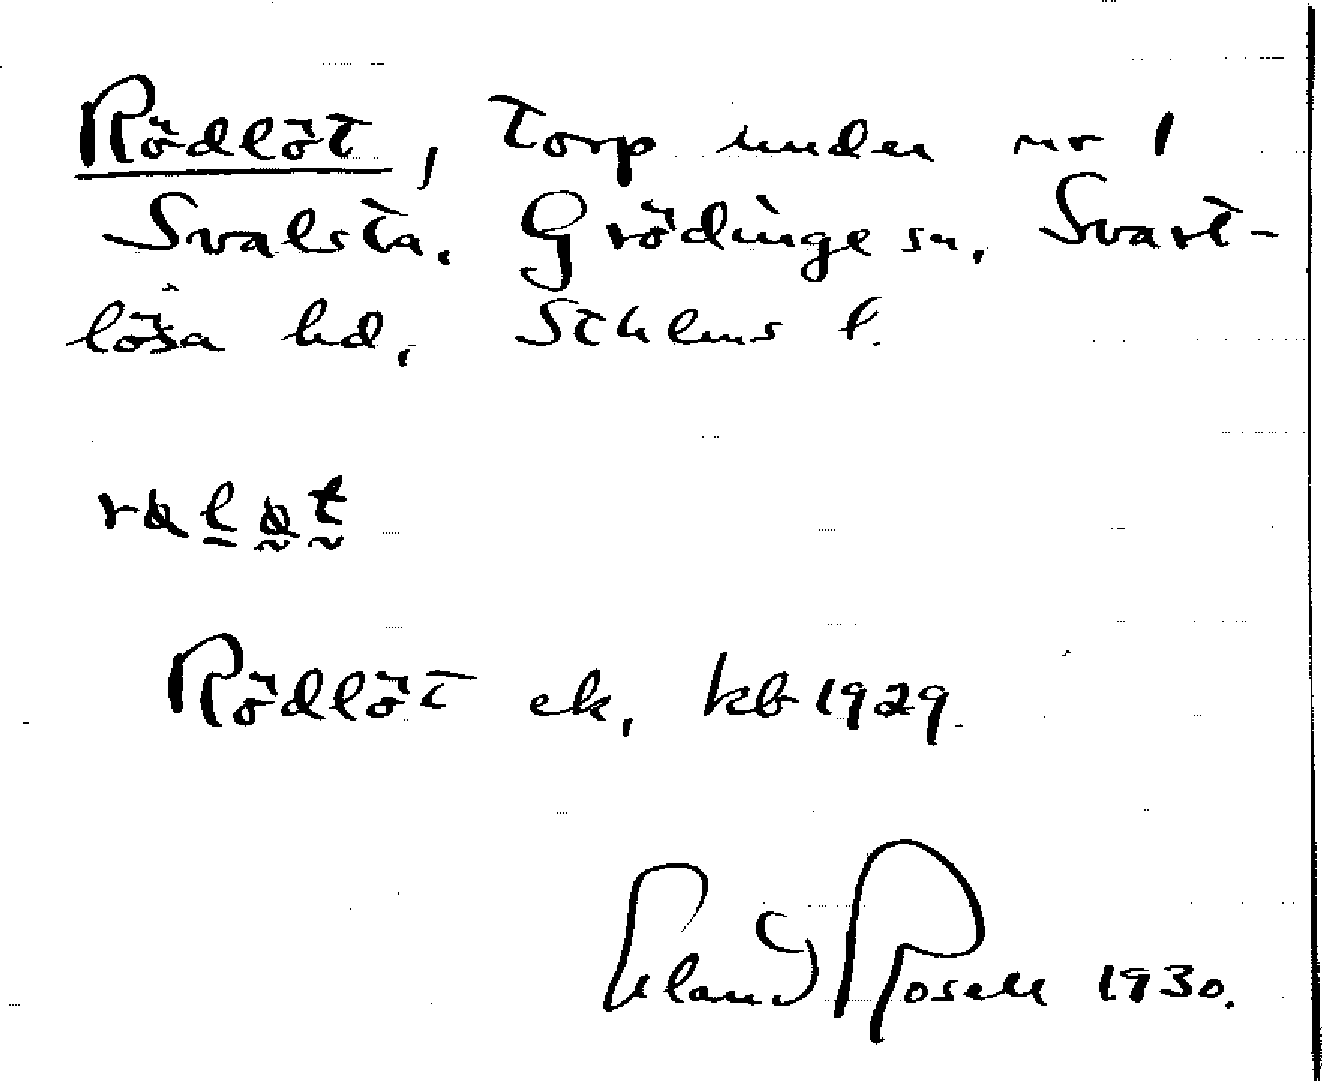 Rödlöt, Torp under nr 1
Svalsta. Grödinge sn, Svart-
lösa hd, Sthlms l.
Rödlöt ek, kb 1929.
Erland Rosell 1930.